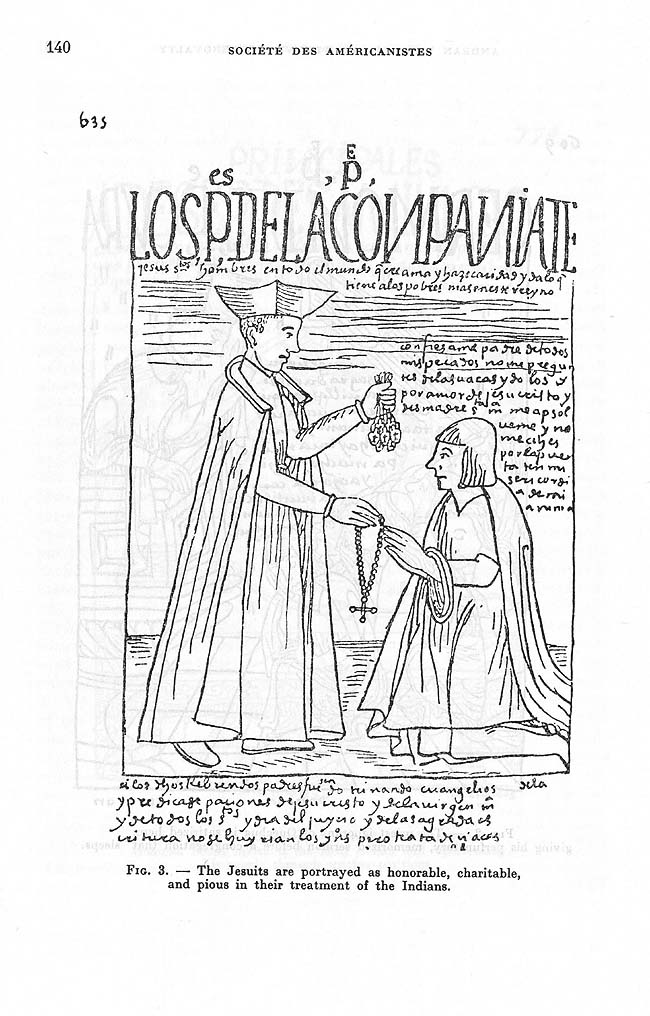 140
SOCIÉTÉ DES AMÉRICANISTES
635
es , E
LOS,P,DELACONPANIATE
Jesus stos hombres en todo el mundo q
tiene a los pobres mas en este rreyno
confiesame padre de todos
mis pecados no me pregun
tes de las uacas ydolos y
por amor de jesucristo y
de su madre sta m me apsol
ueme y no
me eches
por la puer
ta ten mi
sericordi
a de mi
anima
ci los dhos padres dotrinando euangelios de la
y predicase paciones de jesucristo y de la uirgen m
y de todos los y dia del juycio y de la sagrada es
critura no se huyrian los yns
FIG. 3. — The Jesuits are portrayed as honorable, charitable,
and pious in their treatment of the Indians.